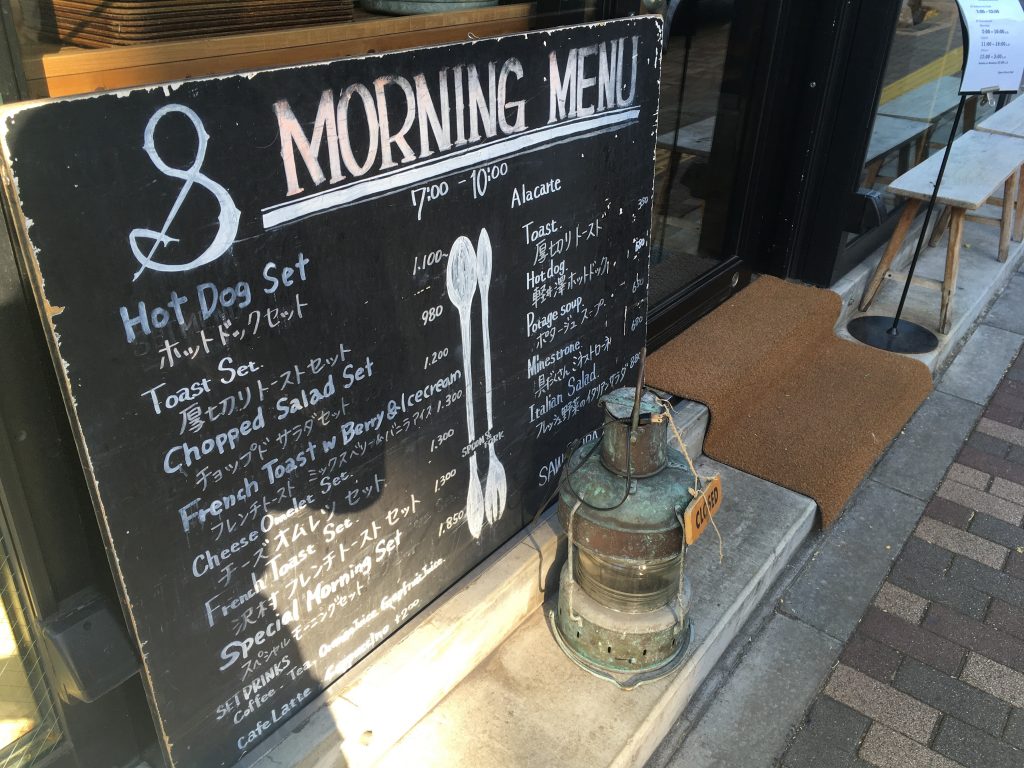 S MORNING MENU
7:00 - 10:00
Hot Dog Set 1.100-
ホットドックセット
Toast Set 980
厚切りトーストセット
Chopped Salad Set 1.200
チョップド サラダセット
French Toast w Berry & Icecream
フレンチトースト ミックスベリー&バニラアイス 1.300
Cheese Omelet Set 1.300
チーズオムレツ セット
French Toast Set 1.300
沢村 フレンチトースト セット
Special Morning Set 1.850
スペシャルモーニングセット
SET DRINKS
Coffee. Tea. Orange Juice
Cafe Latte Cappuccino +200
SPOON & FORK
Alacarte
Toast.
厚切りトースト
Hot dog
軽井澤ホットドック
Potage soup
ポタージュスープ
Minestrone 680
具だくさん ミネストローネ
Italian Salad
CLOSED